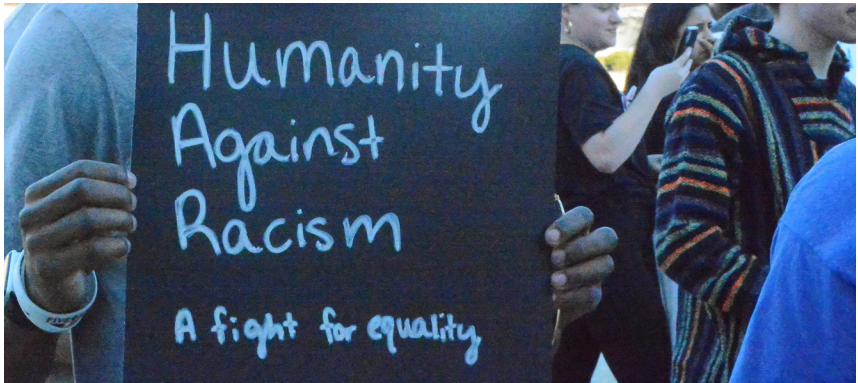 Humanity
Against
Racism
A fight for equality